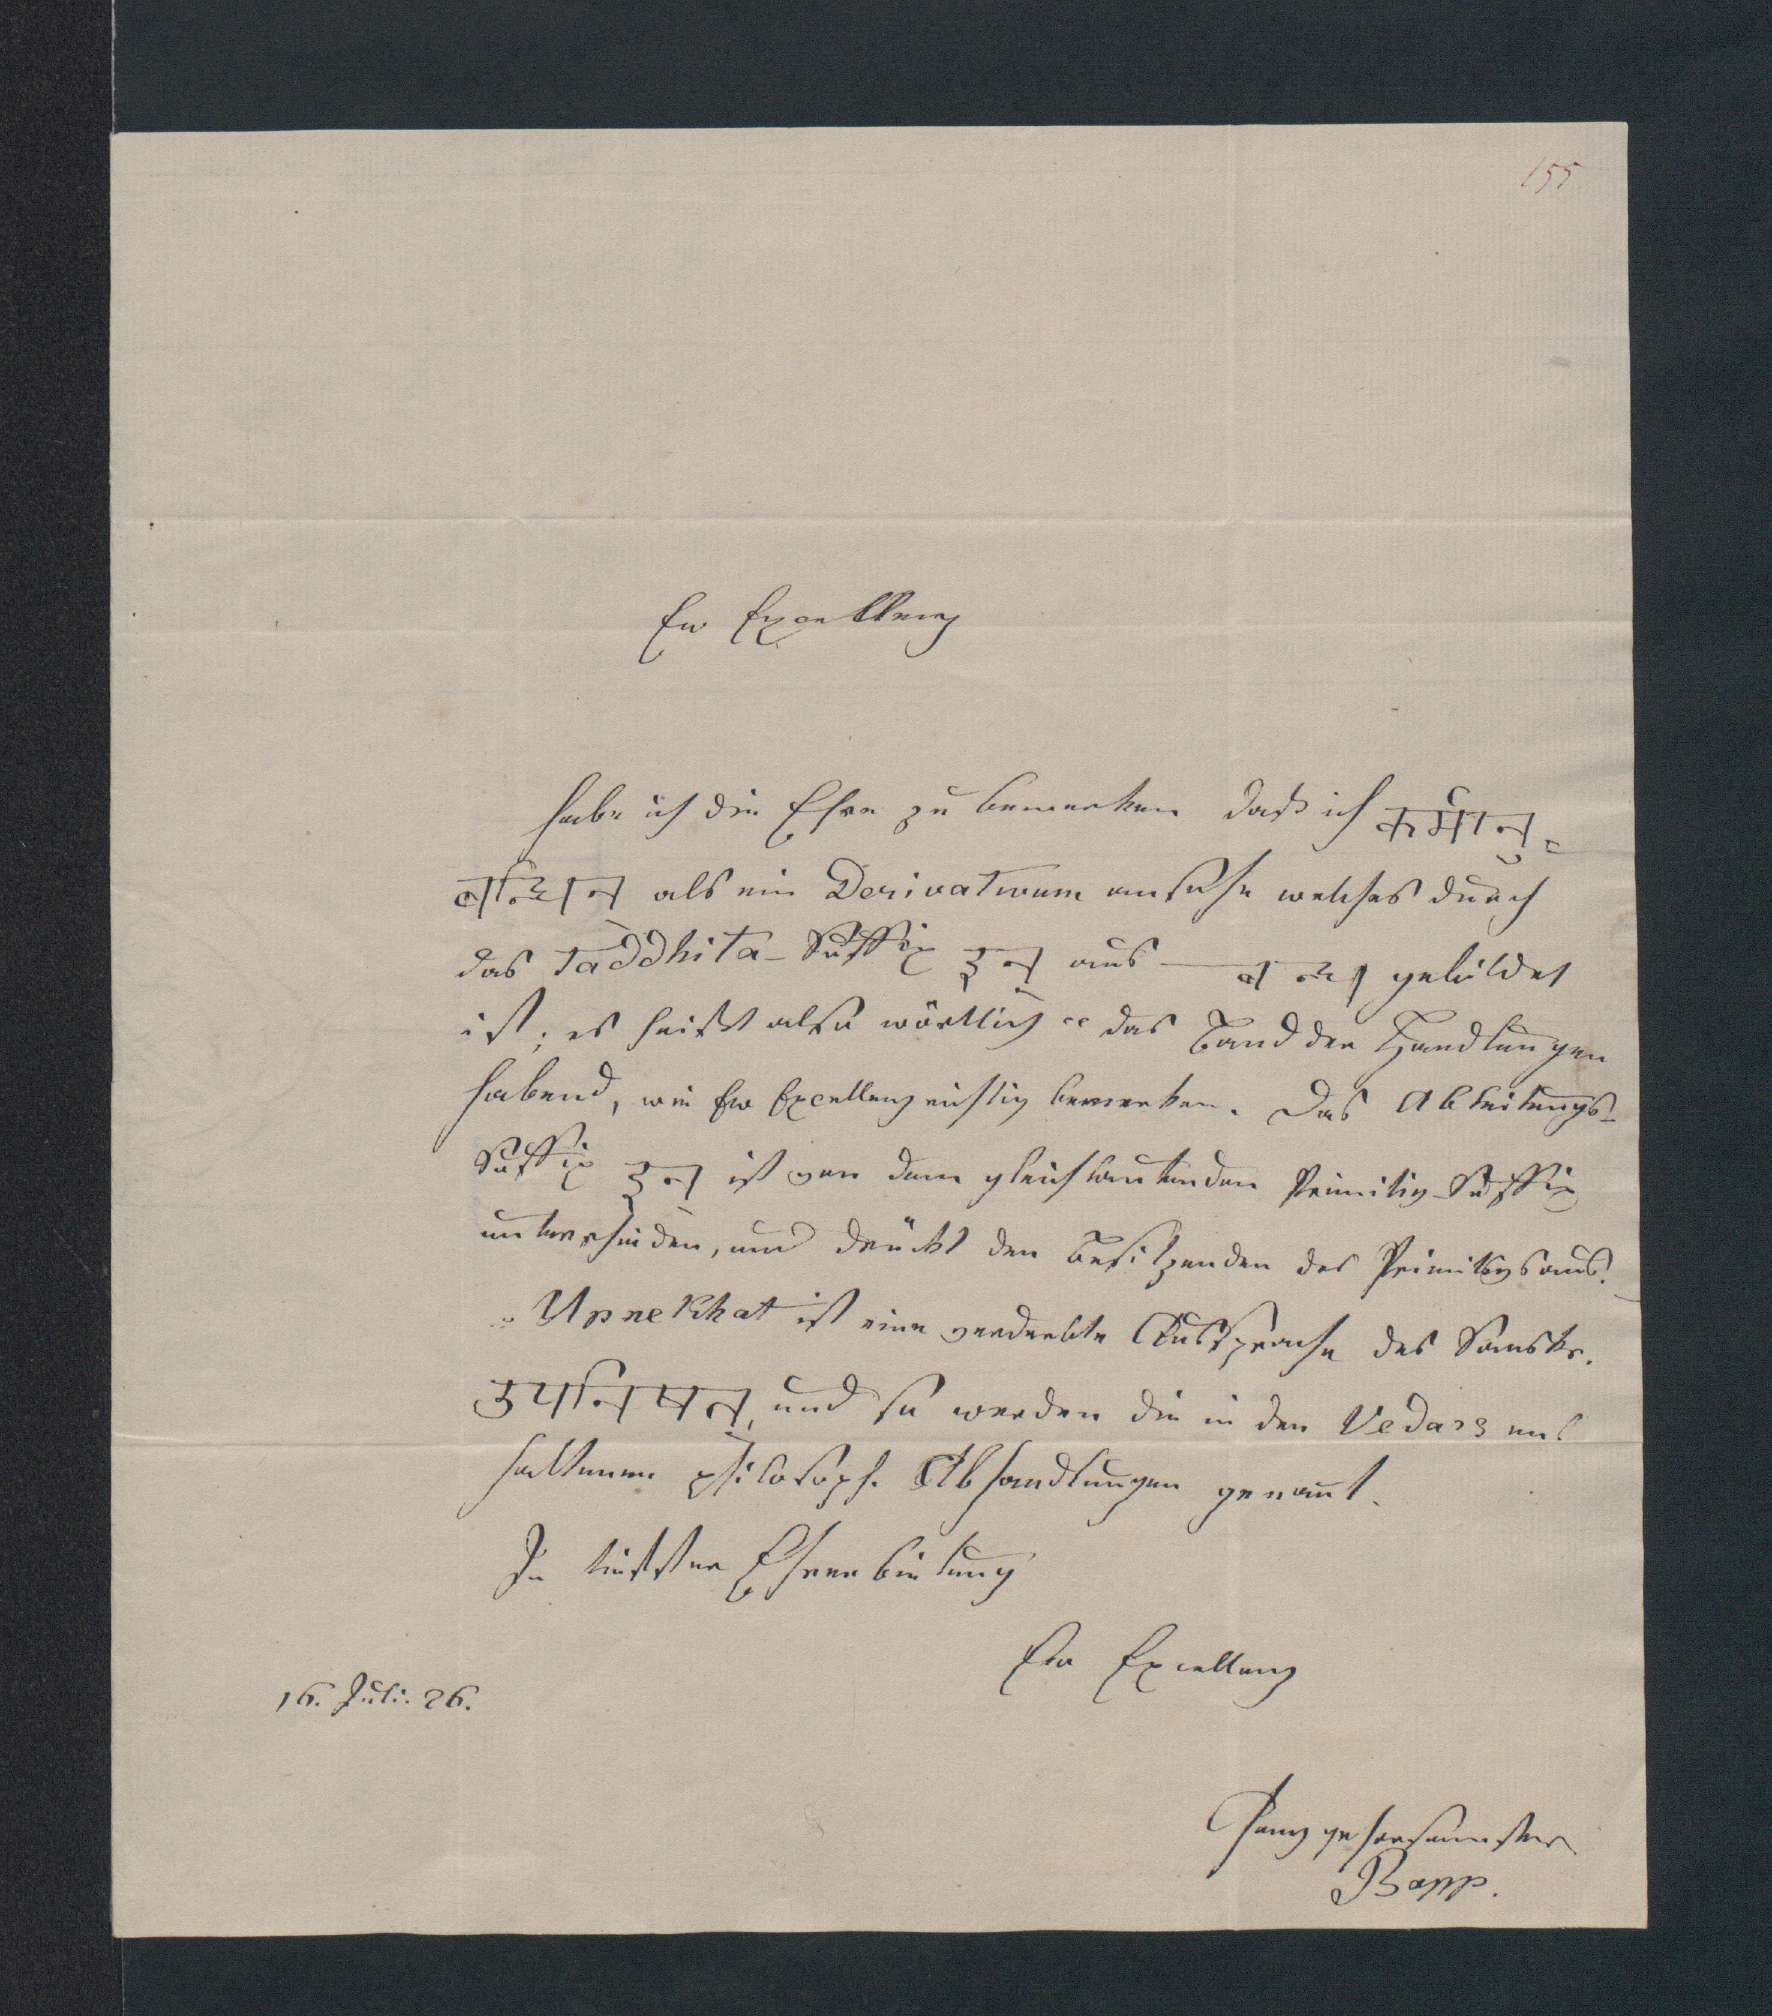 155
Ew Excellenz
habe ich die Ehre zu bemerken daß ich कर्म्मानु=
बन्धिन् als ein Derivativum ansehe welches durch
das Taddhita-Suffix इन् aus —बन्ध gebildet
ist; es heißt also wörtlich „das Band der Handlungen
habend, wie Ew Excellenz richtig bemerken. Das Ableitungs-
Suffix इन् ist von dem gleichlautenden Primitiv-Suffix
unterschieden, und drückt den Besitzenden des Primitivs aus.
Upnekhat ist eine verderbte Aussprache des Sanskr.
उपनिषत्, und so werden die in den Vedas ent
haltenen philosoph. Abhandlungen genant.
In tiefster Ehrerbietung
Ew Excellenz
16. Juli. 26.
ganz gehorsamster
Bopp.